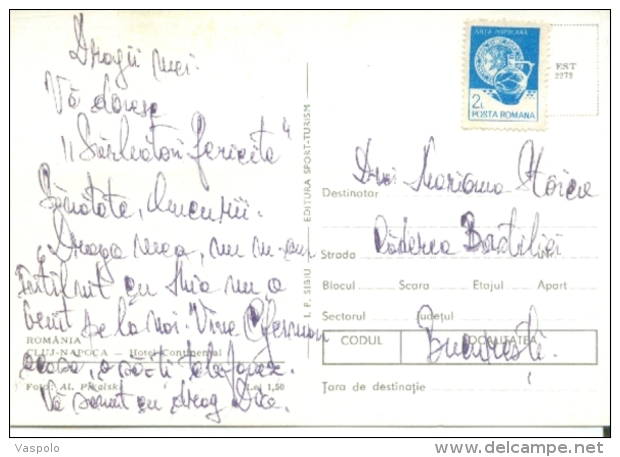 Dragii mei.
Vă doresc
"Sărbători fericite"
Sănătate, bucurii.
Draga mea, nu m-am
întîlnit cu Mia nu a
venit pe la noi. Vine German
acasă, o să-ți telefonez.
Vă sărut cu drag Dica.
ROMÂNIA
CLUJ-NAPOCA — Hotel Continental
Foto: Al.
Lei 1,50
I. P. SIBIU — EDITURA SPORT-TURISM
ARTA POPULARA
2L
POSTA ROMANA
EST
2272
Destinatar Drei Mariana Stoica
Strada Căderea Bastiliei
Blocul Scara Etajul Apart
Sectorul Județul
CODUL LOCALITATEA
București
Țara de destinație
Vaspolo
delcampe.net